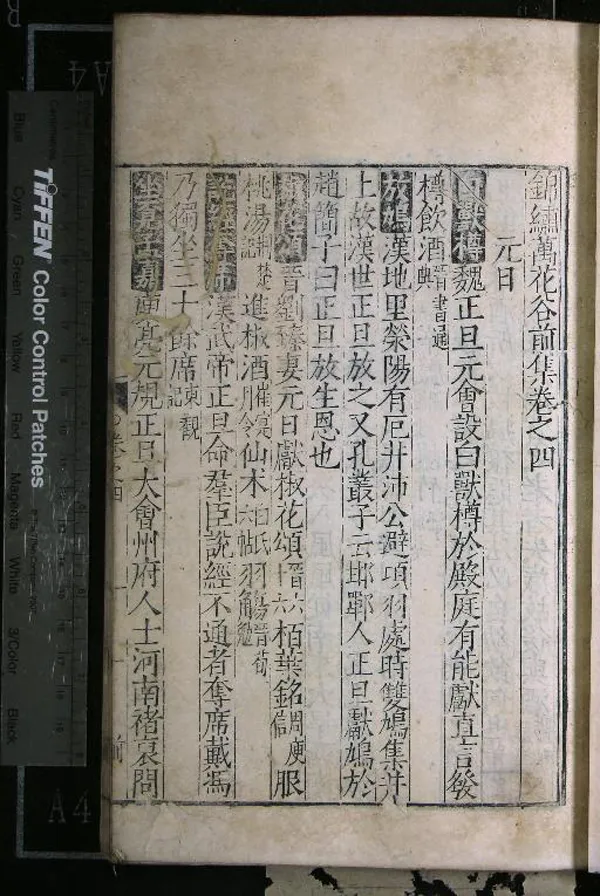 錦繡萬花谷前集卷之四
元日
白獸樽魏正旦元會設白獸樽於殿庭有能獻直言發
樽飲酒晉書通典
放鳩漢地里滎陽有厄井沛公避項羽處時雙鳩集井
上故漢世正旦放之又孔叢子云邯鄲人正旦獻鳩於
趙簡子曰正旦放生恩也
椒花頌晉劉臻妻元日獻椒花頌晉六六栢葉銘周庾信服
桃湯荊楚記進椒酒崔寔月令仙木六帖
說經奪席漢武帝正旦命羣臣說經不通者奪席戴馮
乃獨坐五十餘席東觀記
坐見孟嘉庾亮元規正旦大會州府人士河南褚裒問
TIFFEN Color Control Patches
Blue Cyan Green Yellow Red Magenta White 3/Color Black
A4
A4